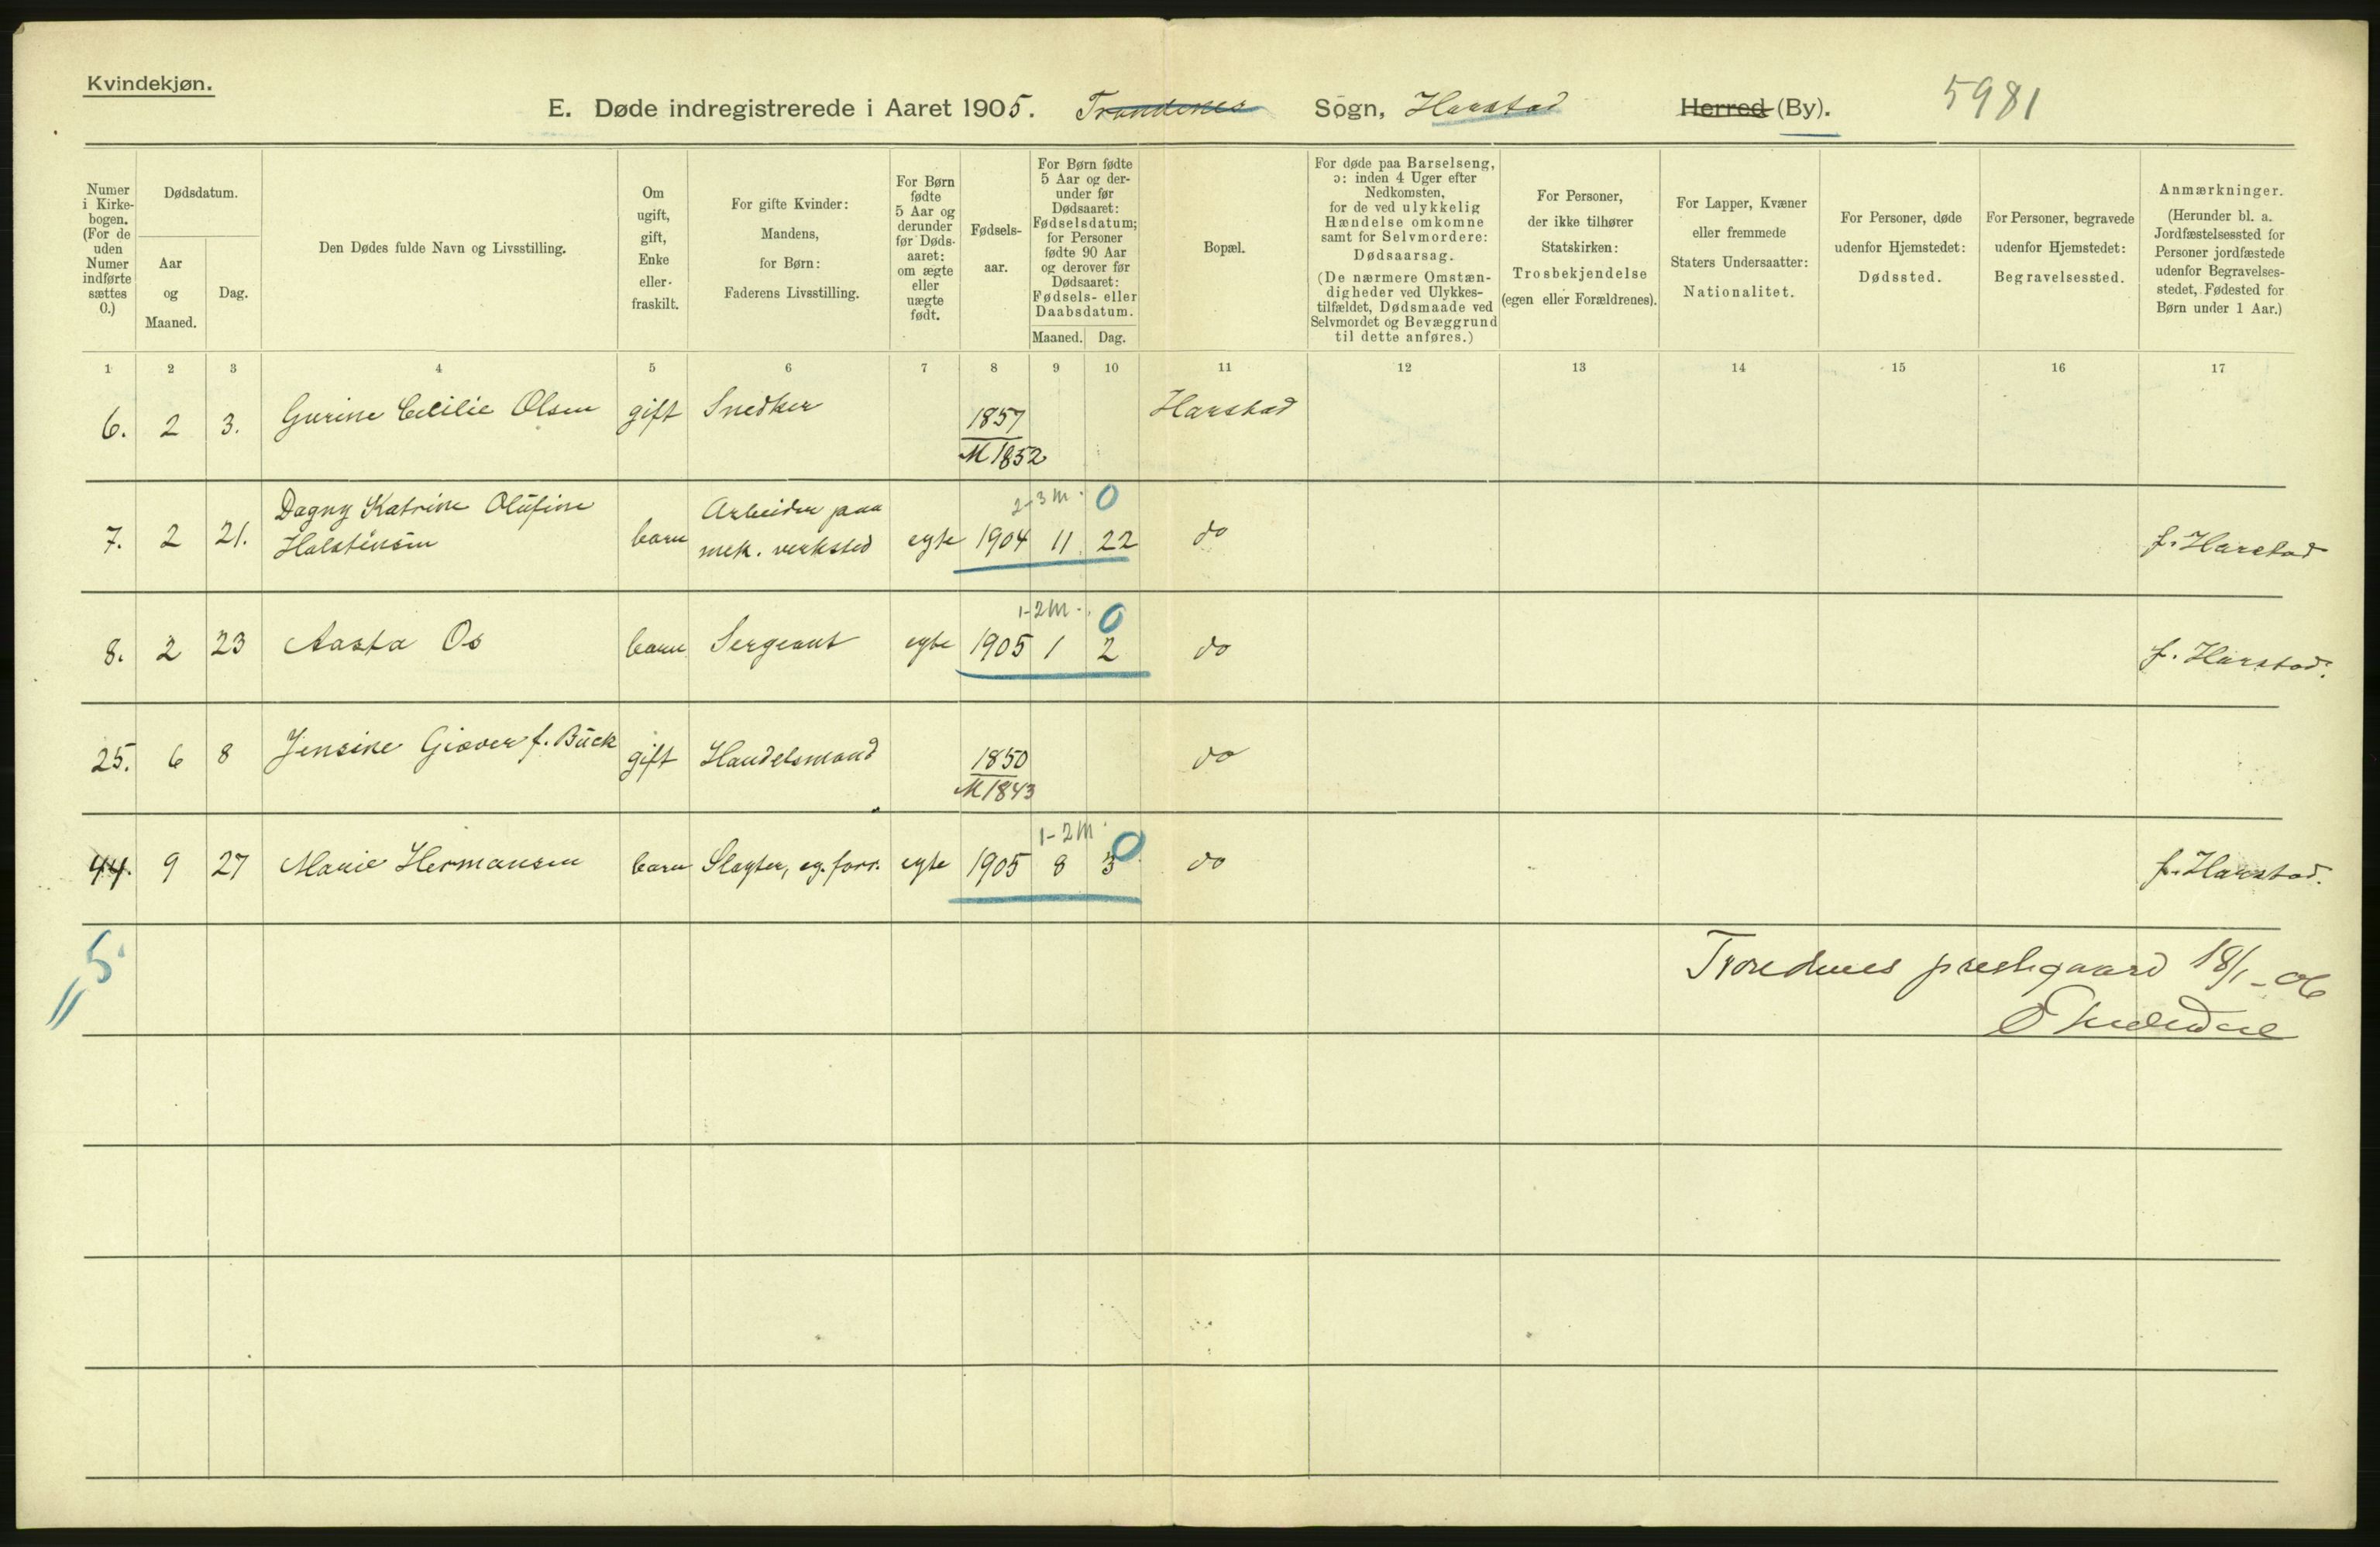 Kvindekjøn.
E. Døde indregistrerede i Aaret 1905. Trondenes Sogn, Harstad Herred (By). 5981
Numer i Kirkebogen. (For de uden Numer indførte sættes 0.)
Dødsdatum.
Aar og Maaned.
Dag.
Den Dødes fulde Navn og Livsstilling.
Om ugift, gift, Enke eller fraskilt.
For gifte Kvinder: Mandens, for Børn: Faderens Livsstilling.
For Børn fødte 5 Aar og derunder før Dødsaaret: om ægte eller uægte født.
Fødselsaar.
For Børn fødte 5 Aar og derunder før Dødsaaret: Fødselsdatum; for Personer fødte 90 Aar og derover før Dødsaaret: Fødsels- eller Daabsdatum.
Maaned. Dag.
Bopæl.
For døde paa Barselseng, ɔ: inden 4 Uger efter Nedkomsten, for de ved ulykkelig Hændelse omkomne samt for Selvmordere: Dødsaarsag. (De nærmere Omstændigheder ved Ulykkestilfældet, Dødsmaade ved Selvmordet og Bevæggrund til dette anføres.)
For Personer, der ikke tilhører Statskirken: Trosbekjendelse (egen eller Forældrenes).
For Lapper, Kvæner eller fremmede Staters Undersaatter: Nationalitet.
For Personer, døde udenfor Hjemstedet: Dødssted.
For Personer, begravede udenfor Hjemstedet: Begravelsessted.
Anmærkninger. (Herunder bl. a. Jordfæstelsessted for Personer jordfæstede udenfor Begravelsesstedet, Fødested for Børn under 1 Aar.)
1 2 3 4 5 6 7 8 9 10 11 12 13 14 15 16 17
6. 2 3. Gurine Cecilie Olsen gift Snedker 1857 Harstad
M 1852
2-3 m. 0
Dagny Katrine Olufine Arbeider paa
7. 2 21. Halstensen barn mek. verksted egte 1904 11 22 do f. Harstad
1-2 m. 0
8. 2 23 Aasta Os barn Sergeant egte 1905 1 2 do f. Harstad.
25. 6 8 Jensine Giæver f. Buck gift Handelsmand 1850 do
M 1843
1-2 m. 0
44. 9 27 Marie Hermansen barn Slagter, eg. forr. egte 1905 8 3 do f. Harstad.
5
Trondenes prestegaard 18/1-06